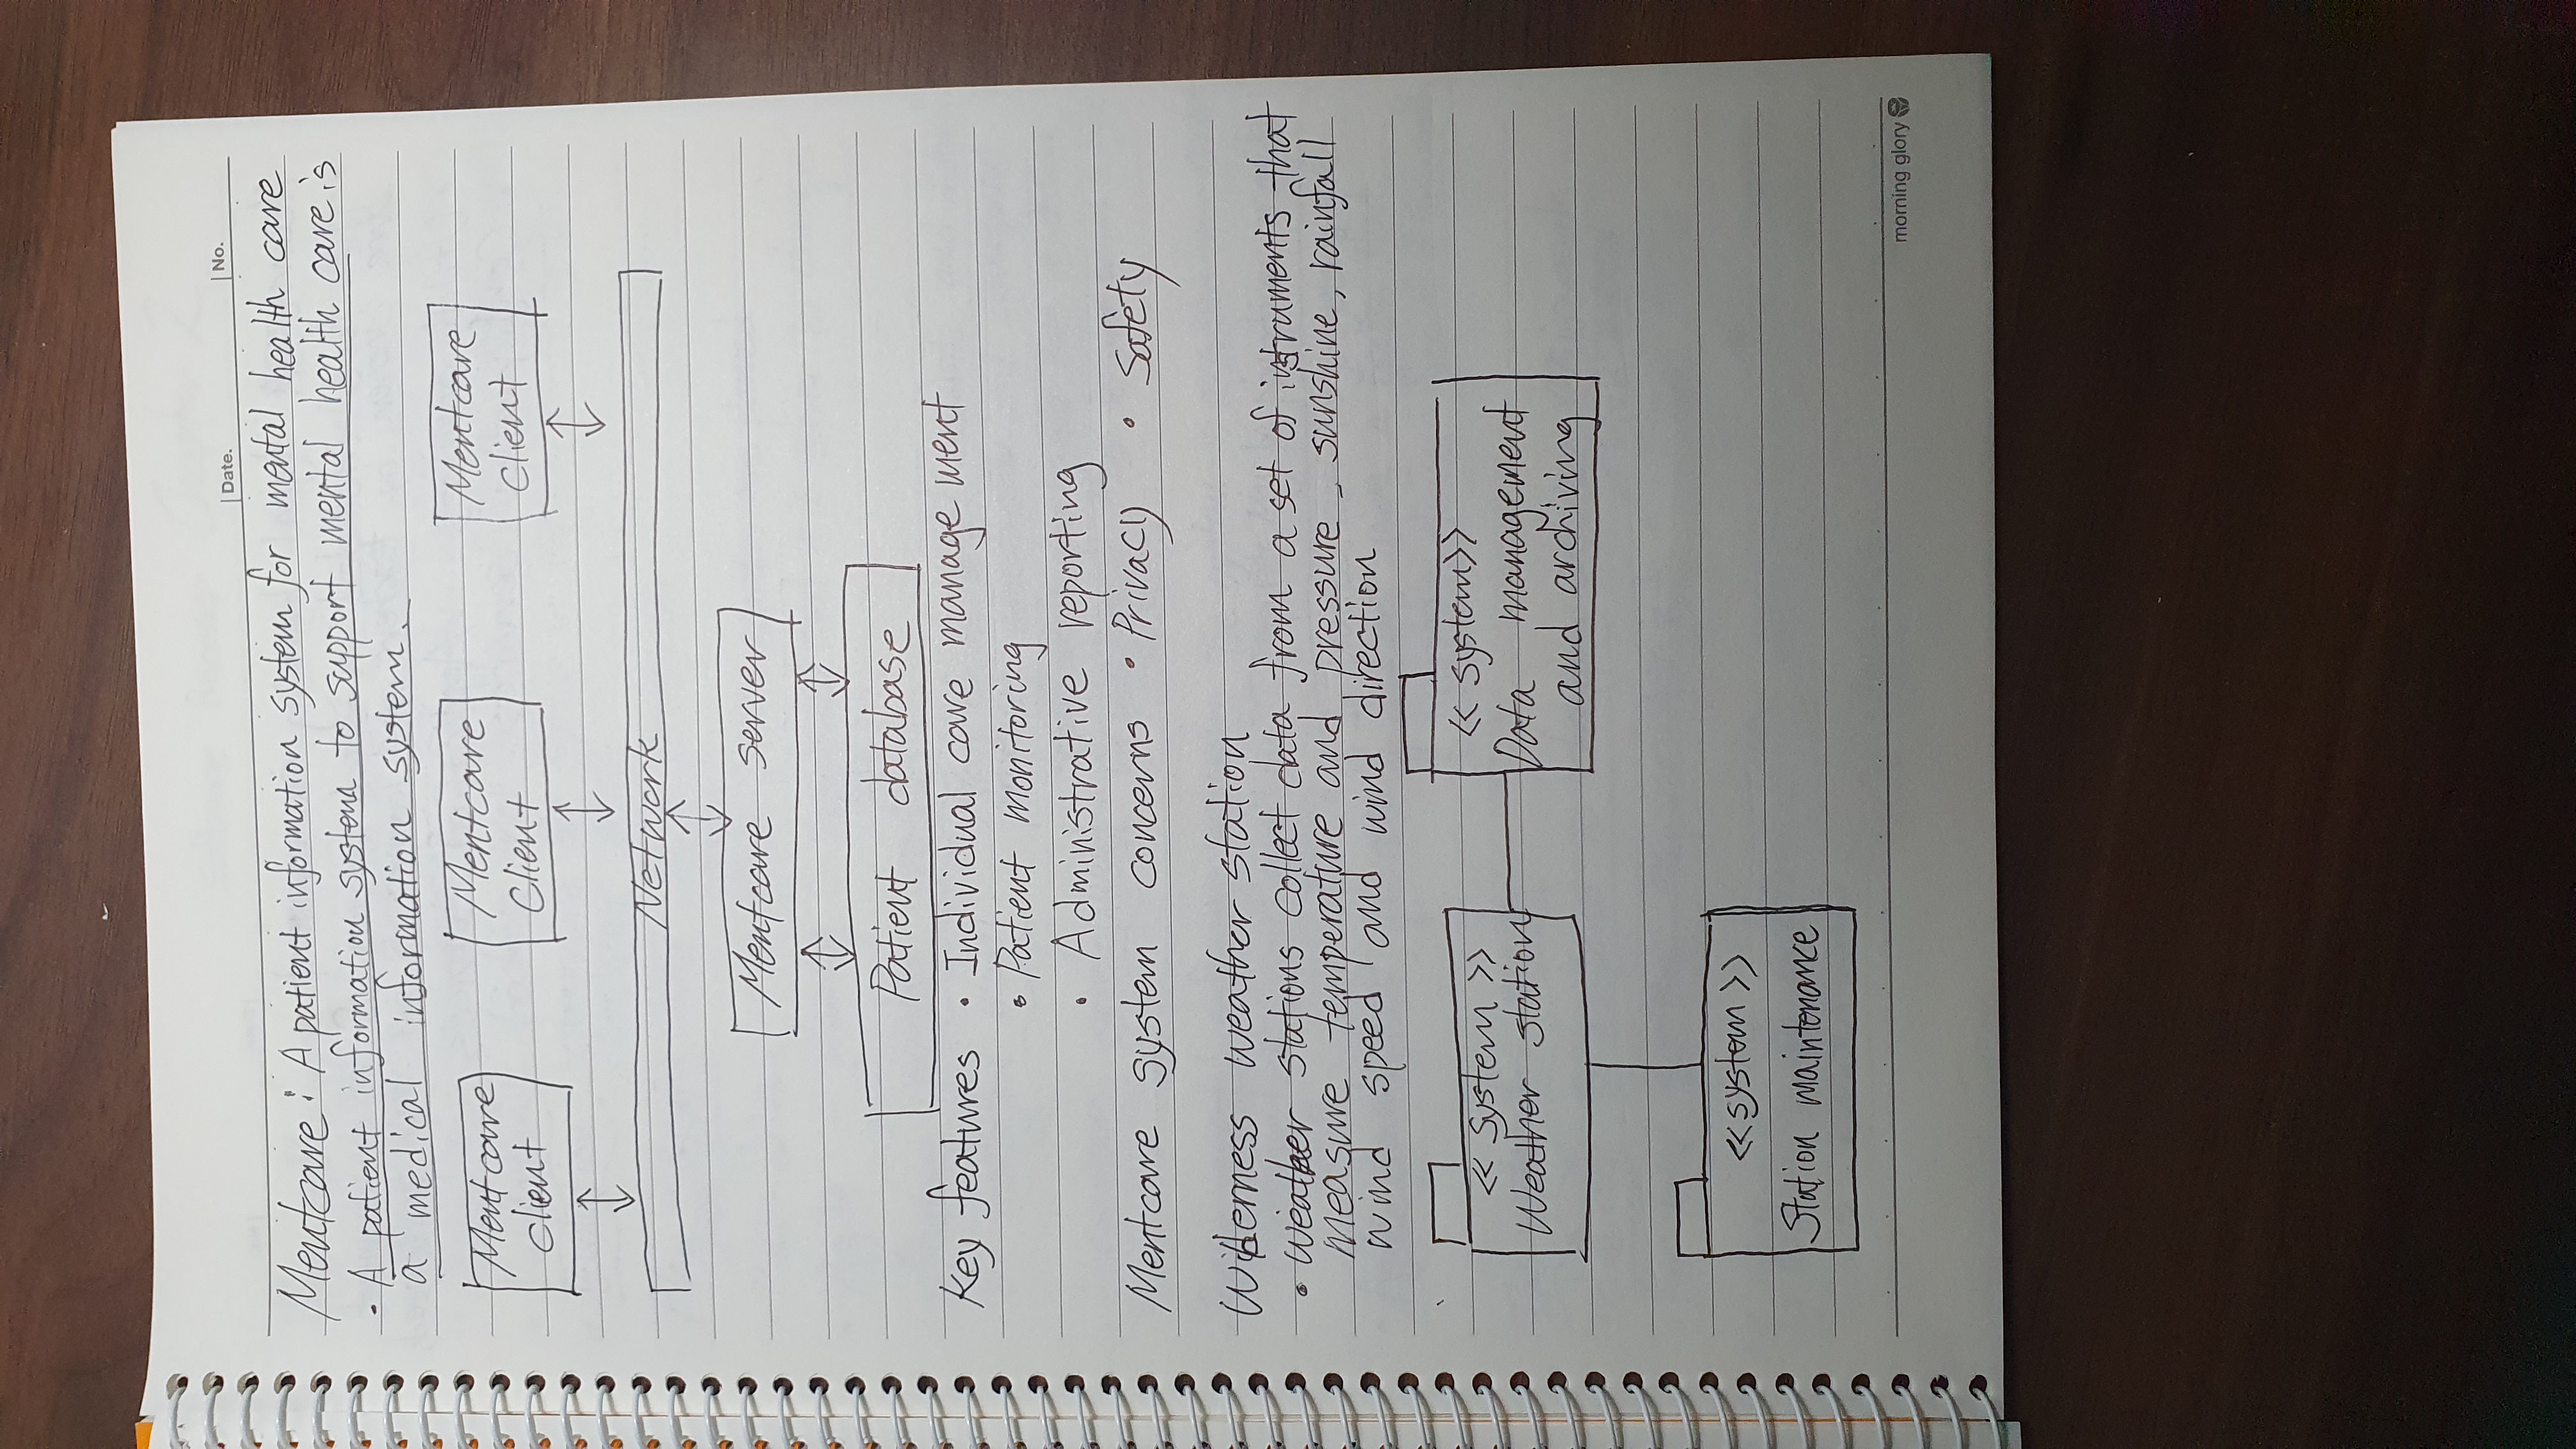 Date. No.
Mentcare : A patient information system for mental health care
· A patient information system to support mental health care is
a medical information system.
Mentcare client
Mentcare client
Mentcare client
Network
Mentcare server
Patient database
Key features · Individual care management
· Patient monitoring
· Administrative reporting
Mentcare system concerns · Privacy · Safety
Wilderness weather station
· weather stations collect data from a set of instruments that
measure temperature and pressure, sunshine, rainfall
wind speed and wind direction
<< system >>
Weather station
<< system >>
Data management
and archiving
<< system >>
Station maintenance
morning glory